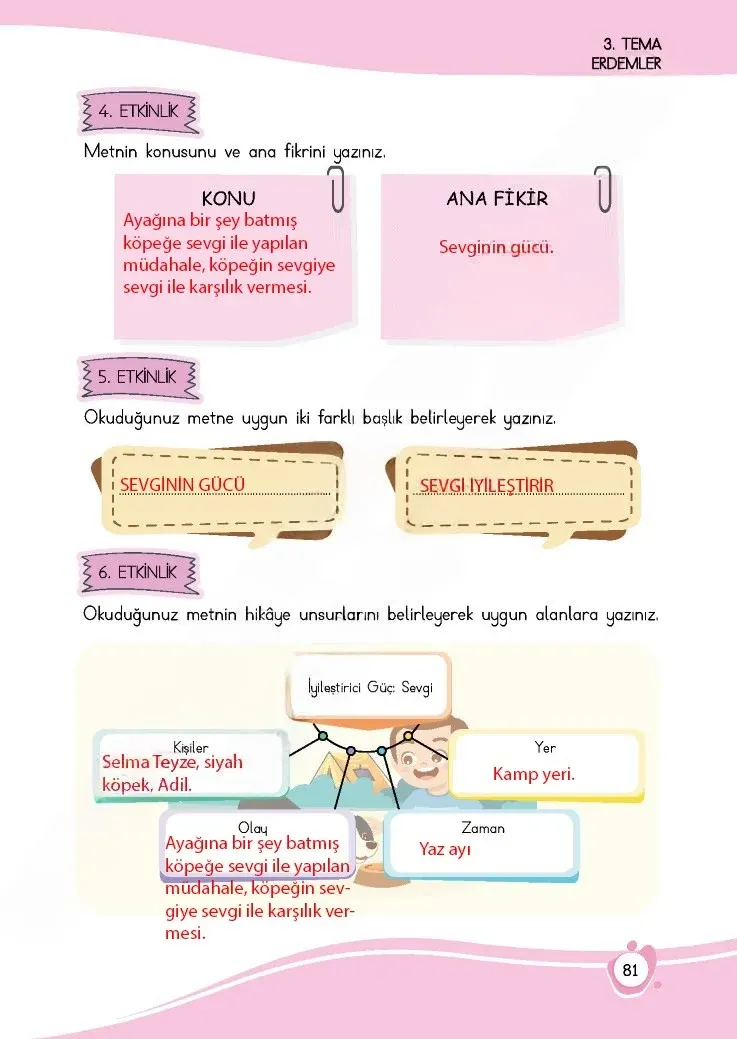 3. TEMA
ERDEMLER
4. ETKİNLİK
Metnin konusunu ve ana fikrini yazınız.
KONU
Ayağına bir şey batmış
köpeğe sevgi ile yapılan
müdahale, köpeğin sevgiye
sevgi ile karşılık vermesi.
ANA FİKİR
Sevginin gücü.
5. ETKİNLİK
Okuduğunuz metne uygun iki farklı başlık belirleyerek yazınız.
SEVGİNİN GÜCÜ
SEVGİ İYİLEŞTİRİR
6. ETKİNLİK
Okuduğunuz metnin hikâye unsurlarını belirleyerek uygun alanlara yazınız.
İyileştirici Güç: Sevgi
Kişiler
Selma Teyze, siyah
köpek, Adil.
Yer
Kamp yeri.
Olay
Ayağına bir şey batmış
köpeğe sevgi ile yapılan
müdahale, köpeğin sev-
giye sevgi ile karşılık ver-
mesi.
Zaman
Yaz ayı
81